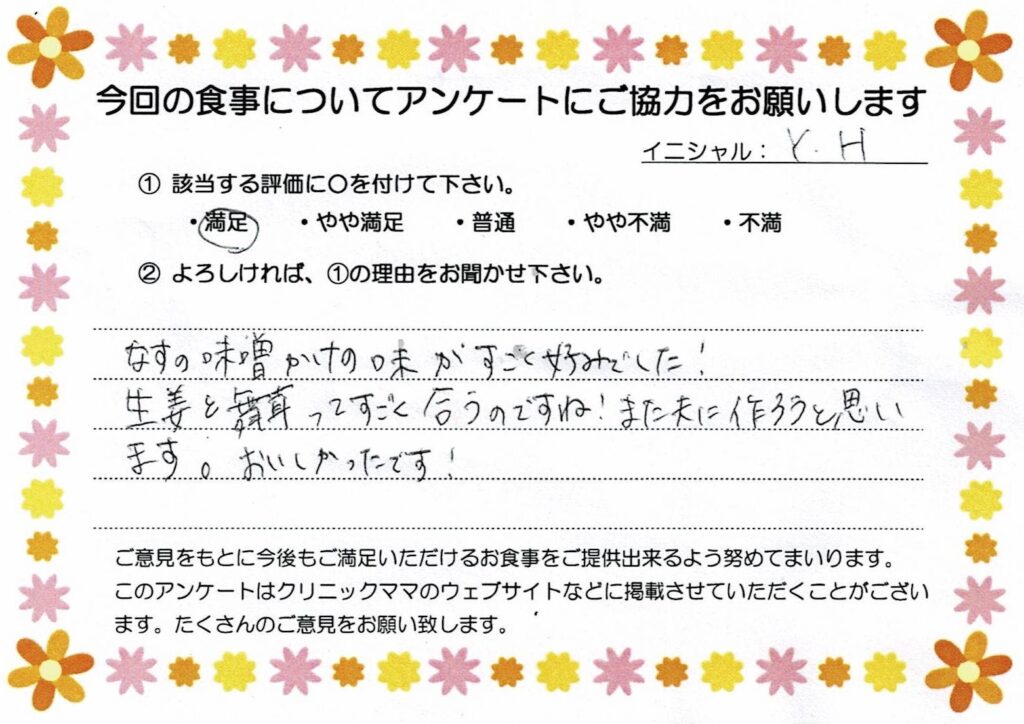 今回の食事についてアンケートにご協力をお願いします
イニシャル： Y. H
① 該当する評価に〇を付けて下さい。
・満足 ・やや満足 ・普通 ・やや不満 ・不満
② よろしければ、①の理由をお聞かせ下さい。
なすの味噌かけの味がすごく好みでした！
生姜と舞茸ってすごく合うのですね！また夫に作ろうと思い
ます。おいしかったです！
ご意見をもとに今後もご満足いただけるお食事をご提供出来るよう努めてまいります。
このアンケートはクリニックママのウェブサイトなどに掲載させていただくことがござい
ます。たくさんのご意見をお願い致します。